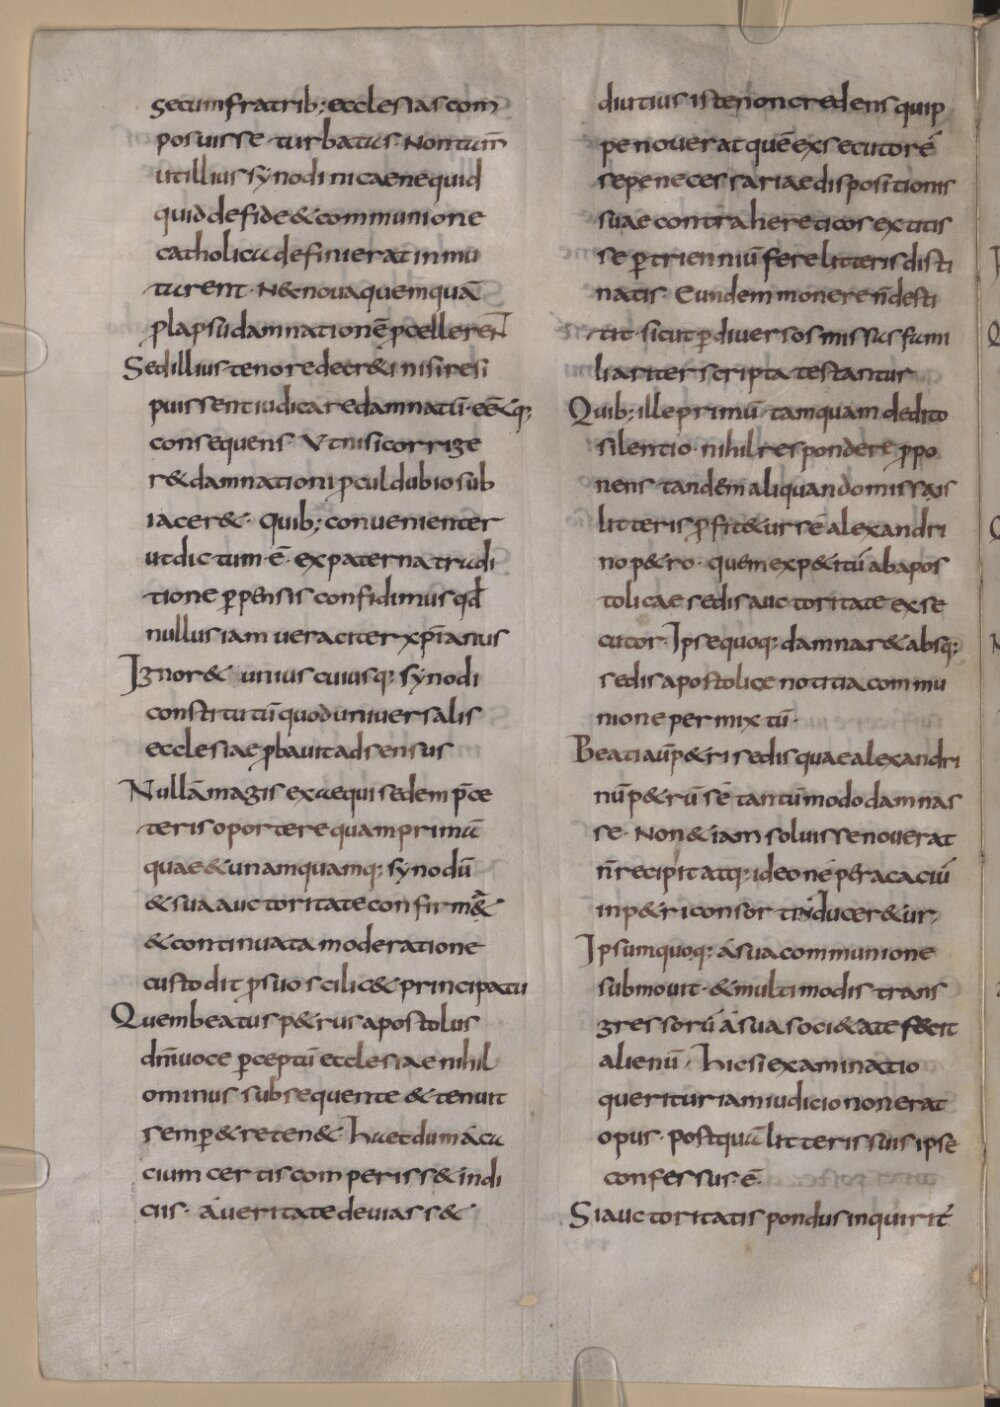 secum fratrib; ecclesias com
posuisse turbatus. Non tum̄
utillius synodi nicaene quid
quid de fide & communione
catholica definierat inmu
turent. N& nova quemquā
plapsū damnationē pcelleren̄t
Sed illius tenore decer&i nisi resi
puissent iudicare damnatū. eē q;
consequens Ut nisi corrige
r& damnationi pculdubio sub
iacer&. Quib; convenienter
ut dictum. ē. ex paterna tradi
tione p̄pensis confidimus qđ
nullus iam veraciter xp̄ianus
Ignor& unius cuiusq; synodi
constitutū quod universalis
ecclesiae pbavit adsensus
Nullā magis exaequi sedem p̄ce
teris oportere quam primū
quae & unamquamq; synodū
& sua auctoritate confirm&
& continuata moderatione
custodit p suo scilic& principatu
Quem beatus p&rus apostolus
dn̄i voce perceptū ecclesiae nihil
ominus subsequente & tenuit
semp & reten& haec dum aca
cium certis comperiss& indi
ciis. á veritate deviass&
diutius iste non credens quip
pe noverat quē exsecutorē
sepe necessariae dispositionis
suae contra hereticos extitis
se p trienniū fere litteris disti
natis. Eundem monere n̄ desti
tit. sicut p diversos missus fami
liariter scripta testantur
Quib; ille primū tamquam dedito
silentio. nihil respondere ppo
nens tandem aliquando missis
litteris pfit&ur sē alexandri
no p&ro. quem exp&itū ab apos
tolicae sedis auctoritate exse
cutor. Ipse quoq; damnar& absq;
sedis apostolicę notitia commu
nione permixtū.
Beati aū p&ri sedis quae alexandri
nū p&rū sē tantūmodo damnas
se. Non &iam solvisse noverat
n̄ recipit atq; ideo ne per acaciū
in p&ri consortiū ducer&ur,
Ipsum quoq; á sua communione
submovit. & multimodis trans
gressorū á sua soci&ate fecit
alienū. hic si examinatio
queritur iam iudicio non erat
opus. postquā litteris suis ipse
confessus. ē.
Si auctoritatis pondus inquirit̄